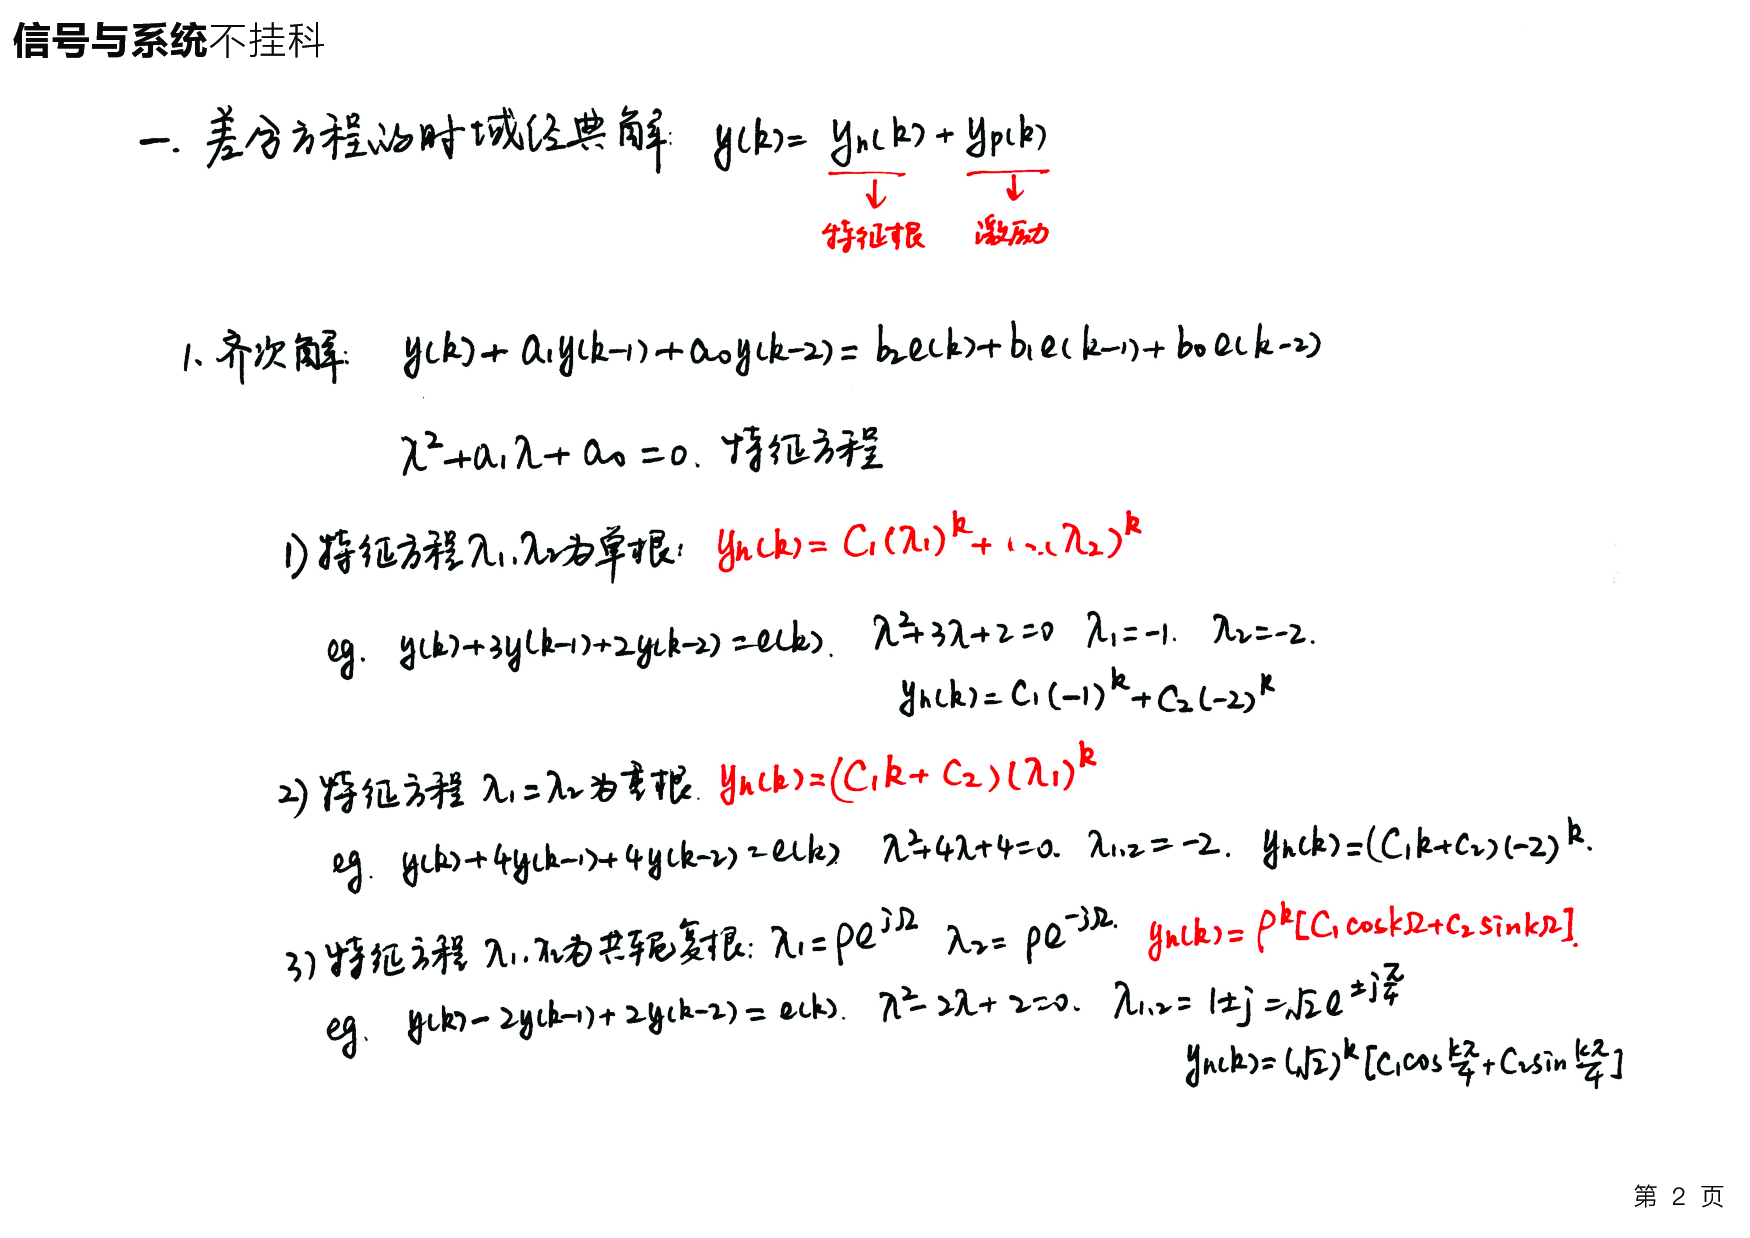 信号与系统不挂科
一. 差分方程的时域经典解: y(k)= yh(k) + yp(k)
↓ ↓
特征根 激励
1、齐次解: y(k)+a₁y(k-1)+a₀y(k-2)=b₂e(k)+b₁e(k-1)+b₀e(k-2)
λ²+a₁λ+a₀=0. 特征方程
1) 特征方程λ₁.λ₂为单根: yh(k)= C₁(λ₁)^k + (λ₂)^k
eg. y(k)+3y(k-1)+2y(k-2)=e(k). λ²+3λ+2=0 λ₁=-1. λ₂=-2.
yh(k)=C₁(-1)^k+C₂(-2)^k
2) 特征方程 λ₁=λ₂为重根. yh(k)=(C₁k+C₂)(λ₁)^k
eg. y(k)+4y(k-1)+4y(k-2)=e(k) λ²+4λ+4=0. λ₁,₂=-2. yh(k)=(C₁k+C₂)(-2)^k.
3) 特征方程 λ₁.λ₂为共轭复根: λ₁=ρe^{jΩ} λ₂=ρe^{-jΩ}. yh(k)=ρ^k[C₁coskΩ+C₂sinkΩ].
eg. y(k)-2y(k-1)+2y(k-2)=e(k). λ²-2λ+2=0. λ₁,₂=1±j=√2e^{±jπ/4}
yh(k)=(√2)^k[C₁cos kπ/4+C₂sin kπ/4]
第 2 页